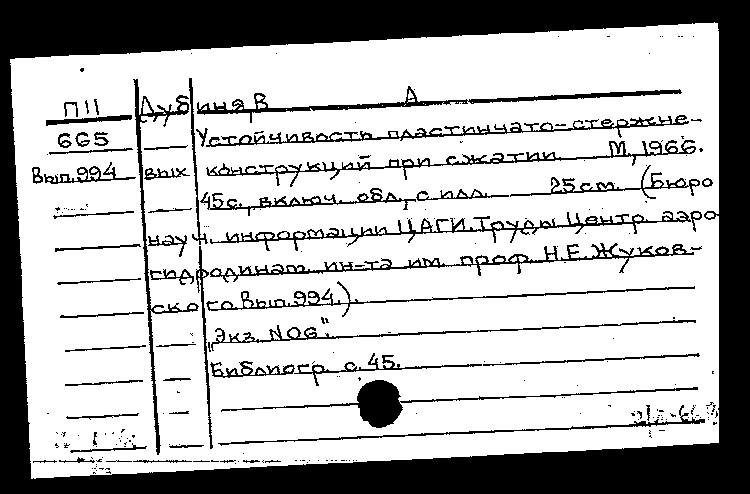 П11 Дубиня, В А
665 Устойчивость пластинчато-стержне-
Вып.994 вых конструкций при сжатии. М., 1966.
45с., включ. обл., с илл. 25см. (Бюро
науч. информации ЦАГИ. Труды Центр. аэро
гидродинам. ин-та им. проф. Н.Е. Жуков-
ского. Вып. 994.).
"Экз. №06".
Библиогр. с. 45.